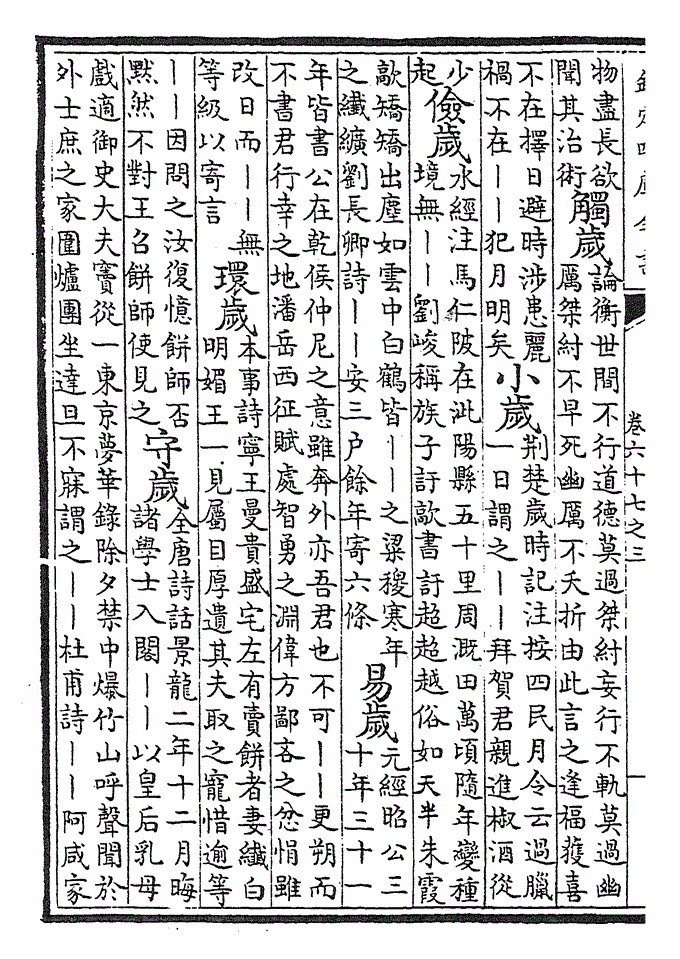 欽定四庫全書
卷六十七之三
物盡長欲
聞其治術
觸歲
論衡世間不行道德莫過桀紂妄行不軌莫過幽
厲桀紂不早死幽厲不夭折由此言之逢福獲喜
不在擇日避時涉患麗
禍不在——犯月明矣
小歲
荆楚歲時記注按四民月令云過臘
一日謂之——拜賀君親進椒酒從
少
起
儉歲
水經注馬仁陂在泚陽縣五十里周溉田萬頃隨年變種
境無——劉峻稱族子訏歊書訏超超越俗如天半朱霞
歊矯矯出塵如雲中白鶴皆——之粱稷寒年
之纖纊劉長卿詩——安三户餘年寄六條
易歲
元經昭公三
十年三十一
年皆書公在乾侯仲尼之意雖奔外亦吾君也不可——更朔而
不書君行幸之地潘岳西征賦處智勇之淵偉方鄙吝之忿悁雖
改日而——無
等級以寄言
環歲
本事詩寧王曼貴盛宅左有賣餅者妻纖白
明媚王一見屬目厚遺其夫取之寵惜逾等
——因問之汝復憶餅師否
黙然不對王召餅師使見之
守歲
全唐詩話景龍二年十二月晦
諸學士入閣——以皇后乳母
戲適御史大夫竇從一東京夢華錄除夕禁中爆竹山呼聲聞於
外士庶之家圍爐團坐達旦不寐謂之——杜甫詩——阿咸家